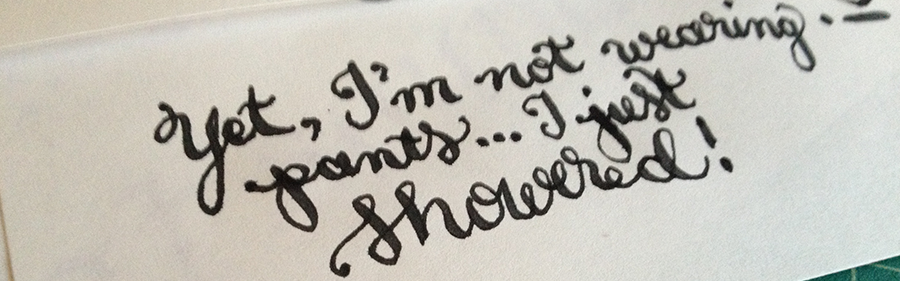 Yet, I'm not wearing.
pants... I just
showered!